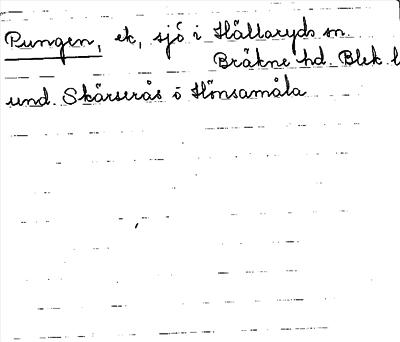 Pungen, ek, sjö i Hällaryds sn.
Bräkne hd. Blek. l
und. Skärserås o Hönsamåla